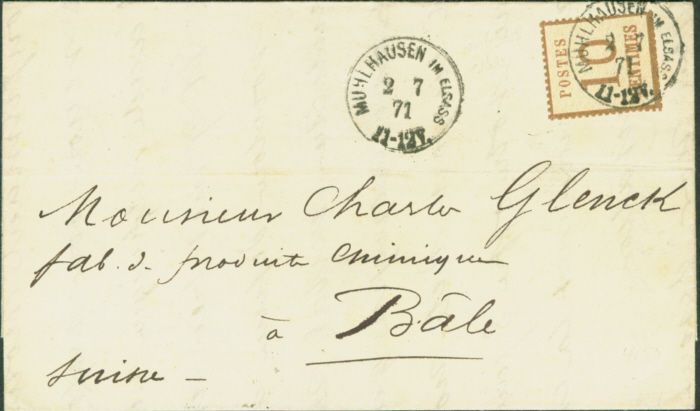 MÜLHAUSEN IM ELSASS
2 7
71
11-12V.
POSTES
10
CENTIMES
MÜLHAUSEN IM ELSASS
2 7
71
11-12V.
Monsieur Charles Glenck
fab. d. produits chimiques
à Bâle
Suisse —